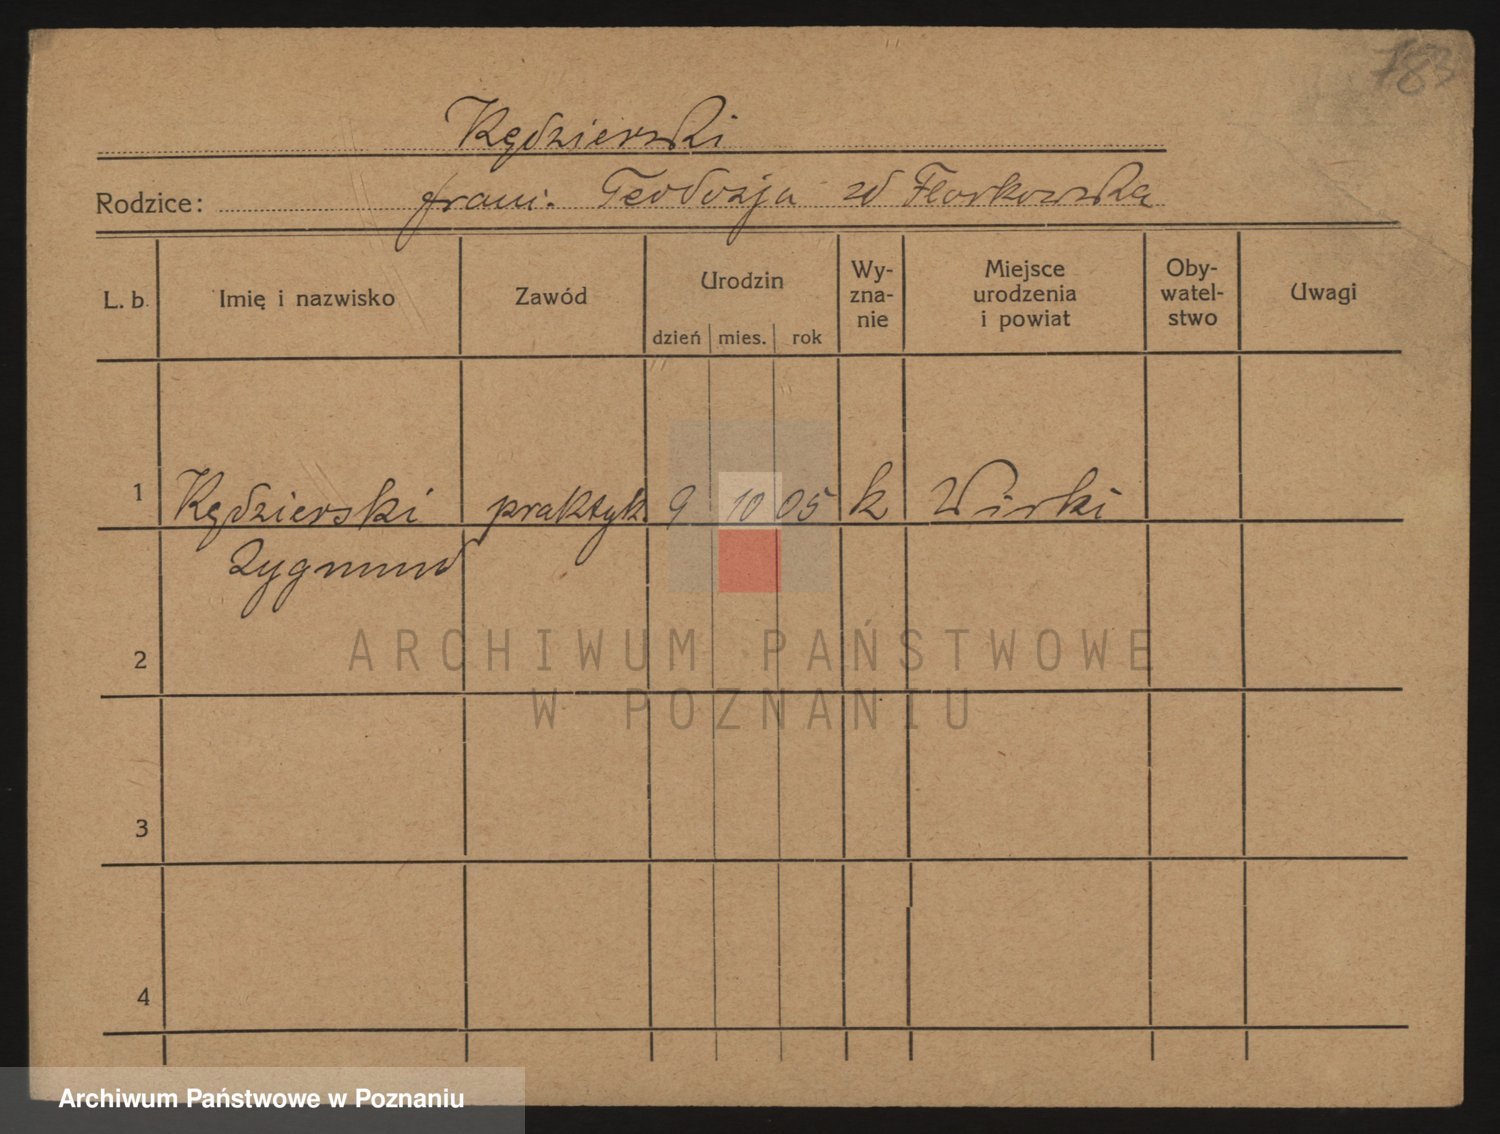 783
Kędzierski
Rodzice: franc. Teodozja zd Florkowska
L. b. Imię i nazwisko Zawód Urodzin dzień mies. rok Wy-zna-nie Miejsce urodzenia i powiat Oby-watel-stwo Uwagi
1 Kędzierski praktyk. 9 10 05 k Wirki
Zygmund
2
3
4
ARCHIWUM PAŃSTWOWE
W POZNANIU
Archiwum Państwowe w Poznaniu